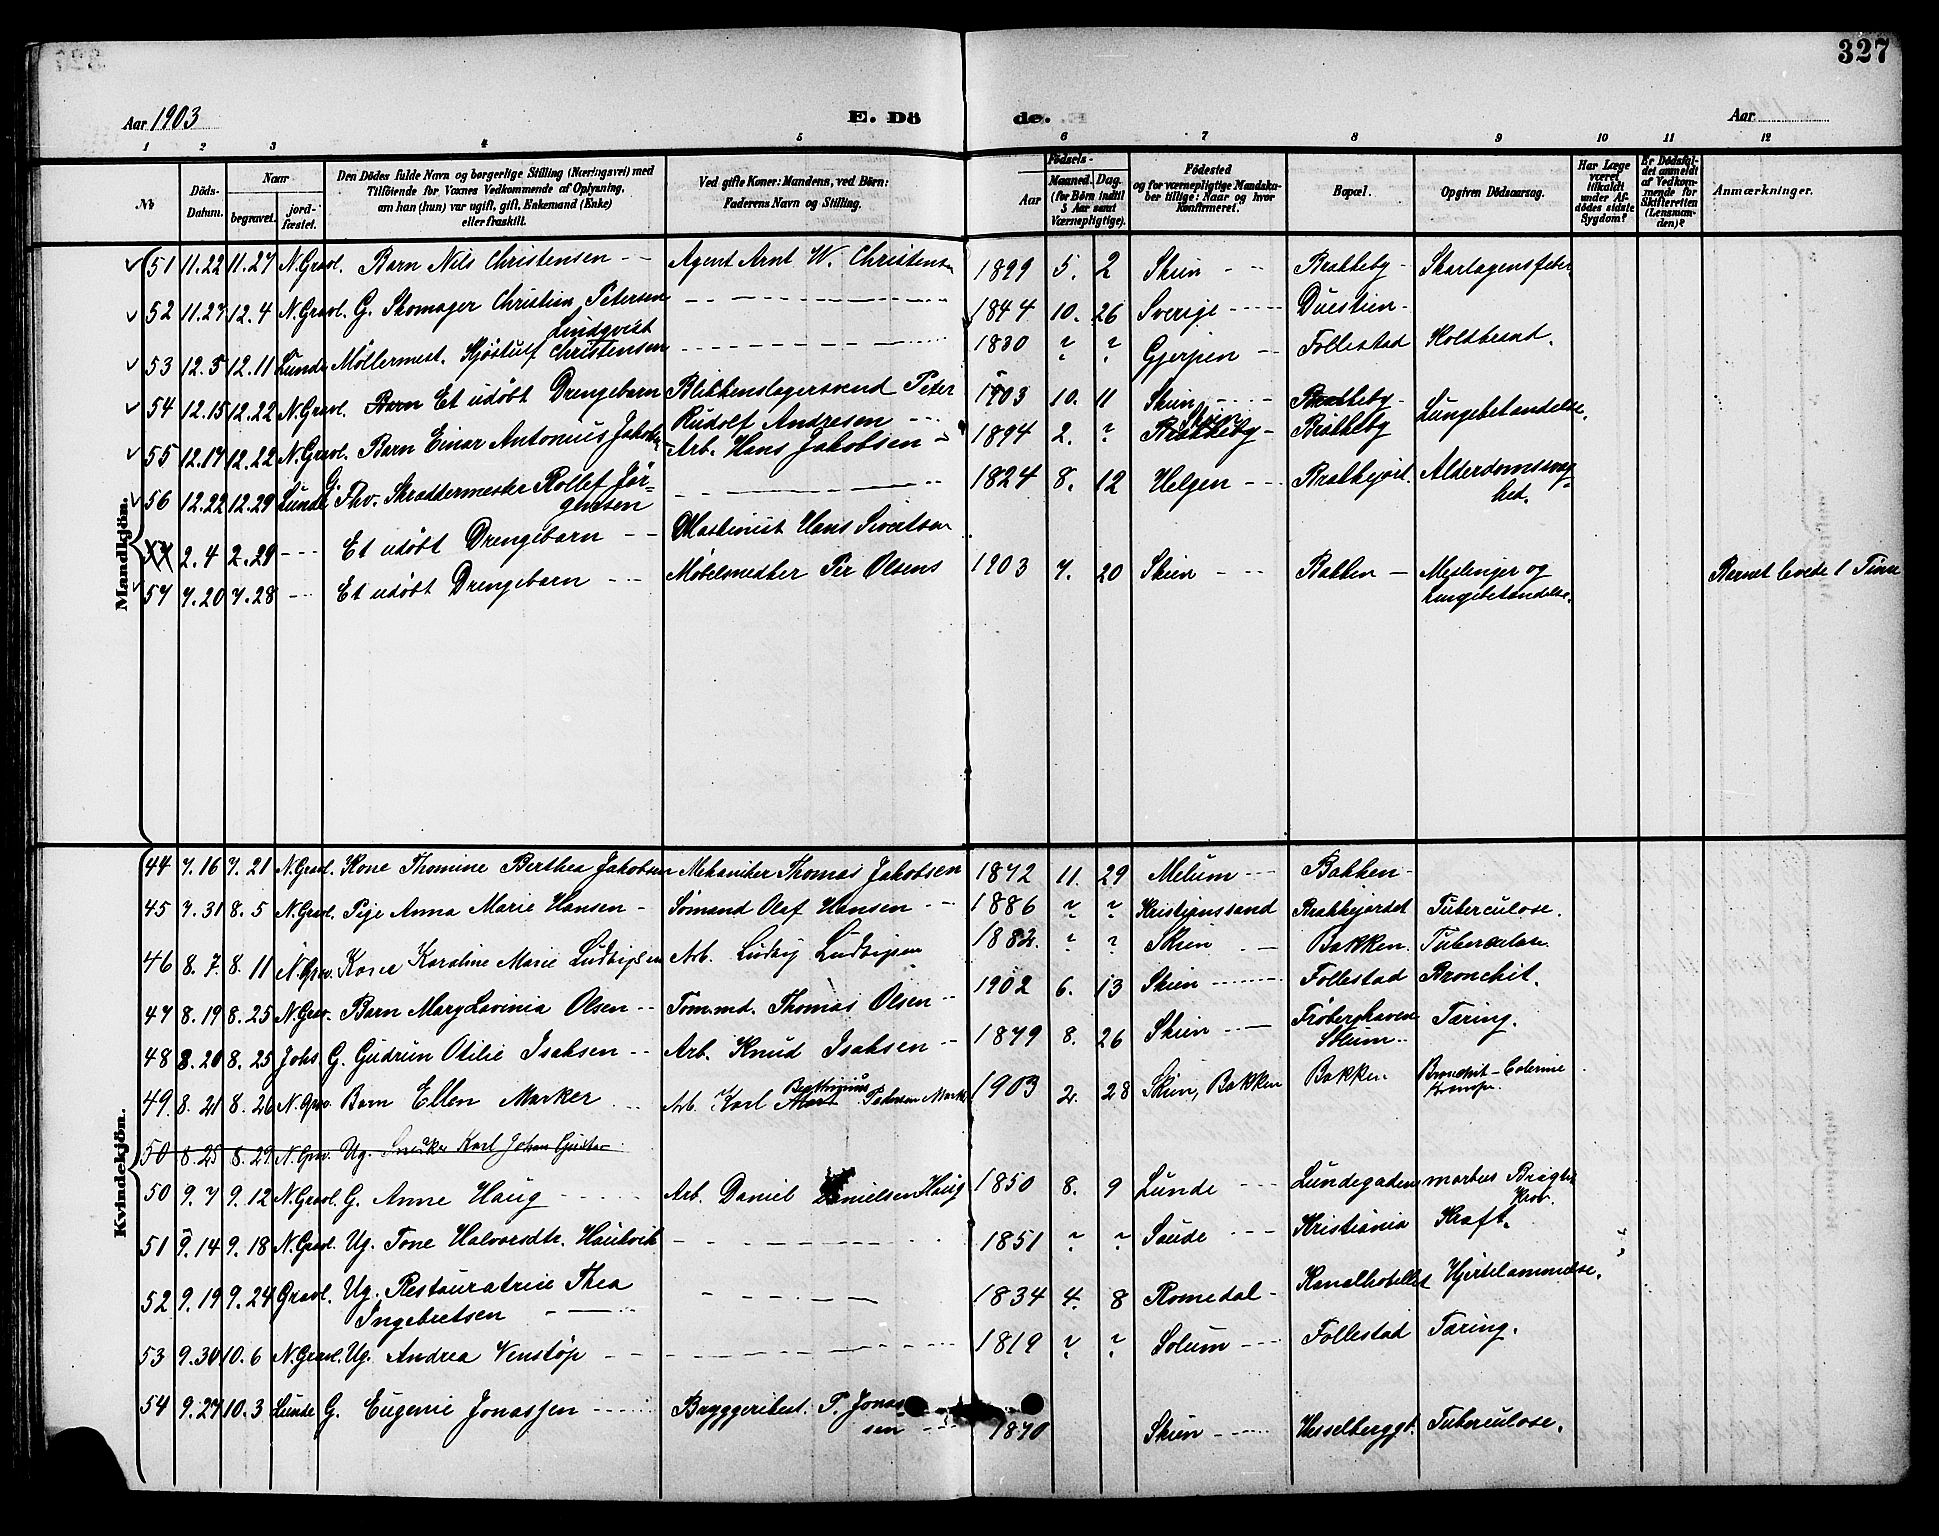 327
Aar 1903 E. Dö de. Aar
1 2 3 4 5 6 7 8 9 10 11 12
№ Döds-Datum. Naar begravet. jord-fæstet. Den Dödes fulde Navn og borgerlige Stilling (Næringsvei) med Tilföiende for Voxnes Vedkommende af Oplysning, om han (hun) var ugift, gift, Enkemand (Enke) eller fraskilt. Ved gifte Koner: Mandens, ved Börn: Faderens Navn og Stilling. Födsels- Aar Maaned. Dag. (for Börn indtil 5 Aar samt Værnepligtige). Födested og for værnepligtige Mandskaber tillige: Naar og hvor Konfirmeret. Bopæl. Opgiven Dödsaarsag. Har Læge været tilkaldt under Afdödes sidste Sygdom? Er Dödsfaldet anmeldt af Vedkommende for Skifteretten (Lensmanden)? Anmærkninger.
Mandkjön.
51 11.22 11.27 N. Gravl. Barn Nils Christensen Agent Arnt W. Christensen 1899 5. 2 Skien Bratteby Skarlagensfeber
52 11.27 12.4 N. Gravl. G. Skomager Christian Petersen Lindqvist 1844 10. 26 Sverige Duestien
53 12.5 12.11 Lunde Möllermest. Kjöstulf Christensen 1830 ? ? Gjerpen Follestad Koldbrand.
54 12.15 12.22 N. Gravl. Barn Et udöbt Drengebarn Blikkenslagersvend Peter Rudolf Andresen 1903 10. 11 Skien Bratteby
55 12.17 12.22 N. Gravl. Barn Einar Antonius Jakobs. Arb. Hans Jakobsen 1894 2. ? Bratteby Bratteby Lungebetændelse.
56 12.22 12.29 Lunde G. Fhv. Skræddermester Rollef Jörgensen 1824 8. 12 Helgen Brækkejord. Alderdomssvaghed.
2.4 2.29 Et udöbt Drengebarn Maskinist Hans Sivertsen
57 7.20 7.28 Et udöbt Drengebarn Möbelsnedker Per Olsens 1903 7. 20 Skien Bakken Meslinger og Lungebetændelse. Barnet levede 1 Time
Kvindekjön.
44 7.16 7.21 N. Gravl. Kone Thomine Berthea Jakobsen Mekaniker Thomas Jakobsen 1872 11. 29 Melum Bakken
45 7.31 8.5 N. Gravl. Pige Anna Marie Hansen Sömand Olaf Hansen 1886 ? ? Kristianssand Brækkejordet Tuberculose.
46 8.7 8.11 N. Grav. Kone Karoline Marie Ludvigsen Arb. Ludvig Ludvigsen 1882. ? ? Skien Bakken. Tuberculose.
47 8.19 8.25 N. Grav. Barn Mary Lavinia Olsen Tömmd. Thomas Olsen 1902 6. 13 Skien Follestad Bronchit.
48 8.20 8.25 Johs G. Gudrun Otilie Isaksen Arb. Knud Isaksen 1879 8. 26 Skien Solum Tæring.
49 8.21 8.26 N. Grav. Barn Ellen Marker Arb. Karl Pedersen Marker 1903 2. 28 Skien, Bakken Bakken Bronchit
50 8.25 8.29 N. Grav. Ug. Snedker Karl Johan Gustav
50 9.7 9.12 N. Gravl. G. Anne Haug Arb. Daniel Danielsen Haug 1850 8. 9 Lunde Lundegaden morbus Brigtii
51 9.14 9.18 N. Gravl. Ug. Tone Halvorsdtr. Haukvik 1851 ? ? Saude Kristiania Kræft.
52 9.19 9.24 Gravl. Ug. Restauratrice Thea Ingebretsen 1834 4. 8 Romedal Kanalhotellet Hjertelammelse.
53 9.30 10.6 N. Gravl. Ug. Andrea Venstöp 1819 ? ? Solum Follestad Tæring.
54 9.27 10.3 Lunde G. Eugenie Jonassen Bryggeribest. P. Jonassen 1870 Skien Hesselberggt. Tuberculose.